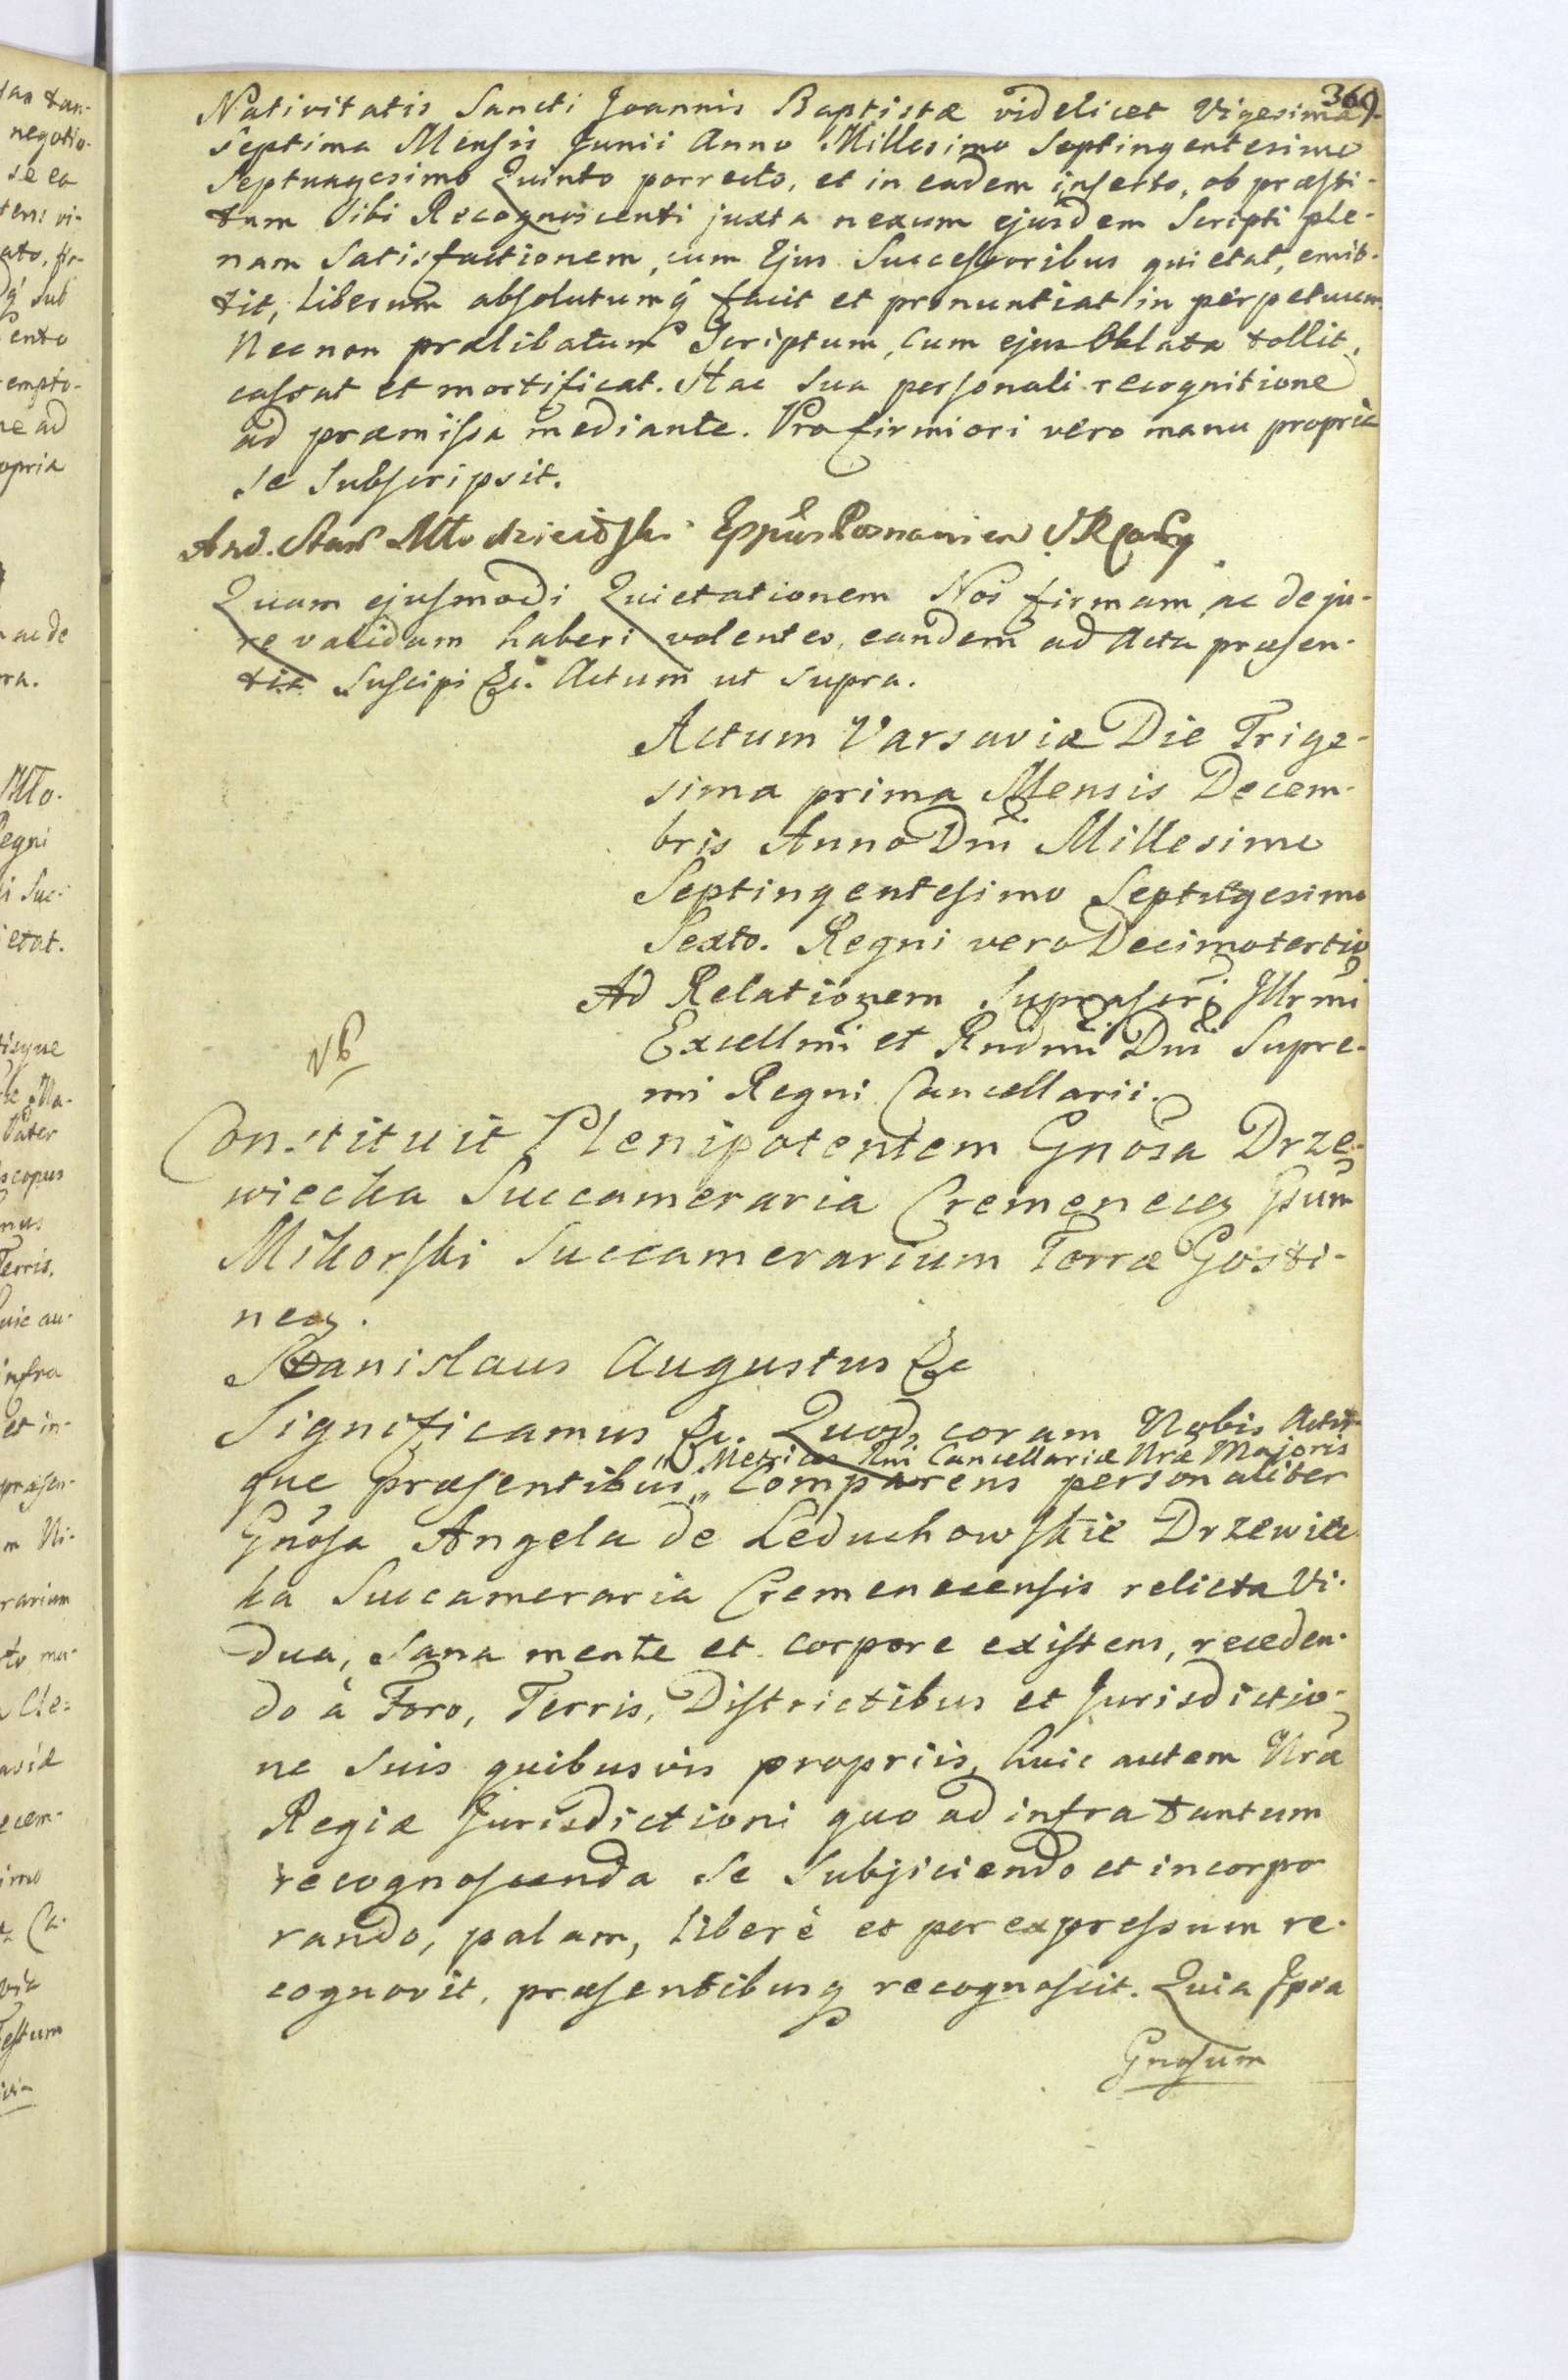 369.
Nativitatis Sancti Joannis Baptistæ videlicet Vigesima
Septima Mensis Junii Anno Millesimo Septingentesimo
Septuagesimo Quinto porrecto, et in eadem inserto, ob præsti-
tam Sibi Recognoscenti juxta nexum ejusdem Scripti ple-
nam Satisfactionem, cum Ejus Successoribus quietat, emit-
tit, liberum absolutumq́ facit et pronuntiat in perpetuum.
Necnon prælibatum Scriptum, cum ejus Oblata tollit,
cassat et mortificat. Hac Sua personali recognitione
ad præmissa mediante. Pro firmiori vero manu propria
se Subscripsit.
And. Młodzieiowski Eppus Posnanien
Quam ejusmodi Quietationem Nos firmam, ac de ju-
re validam haberi volentes, eandem ad Acta præsen-
tia Suscipi &c. Actum ut supra.
Actum Varsaviæ Die Trige-
sima prima Mensis Decem-
bris Anno Dni Millesimo
Septingentesimo Septuagesimo
Sexto. Regni vero Decimotertio
Ad Relationem Suprascri Illrmi
Excellmi et Rndmi Dni Supre-
mi Regni Cancellarii.
NB
Constituit Plenipotentem Gnosa Drze-
wiecka Succameraria Cremenecen Gsum
Mikorski Succamerarium Terræ Gosti-
nen.
Stanislaus Augustus &c
Significamus &c. Quod, coram Nobis Actis-
" Metrices Rni Cancellariæ Nræ Majoris
que præsentibus " Comparens personaliter
Gnosa Angela de Leduchowskie Drzewiec
ka Succameraria Cremenecensis relicta Vi-
dua, Sana mente et corpore existens, receden-
do à Foro, Terris, Districtibus et Jurisdictio-
ne Suis quibusvis propriis, huic autem Nræ
Regiæ Jurisdictioni quo ad infra tantum
recognoscenda Se Subjiciendo et incorpo
rando, palam, liberè et per expressum re-
cognovit, præsentibusq recognoscit. Quia Ipsa
Gnosum